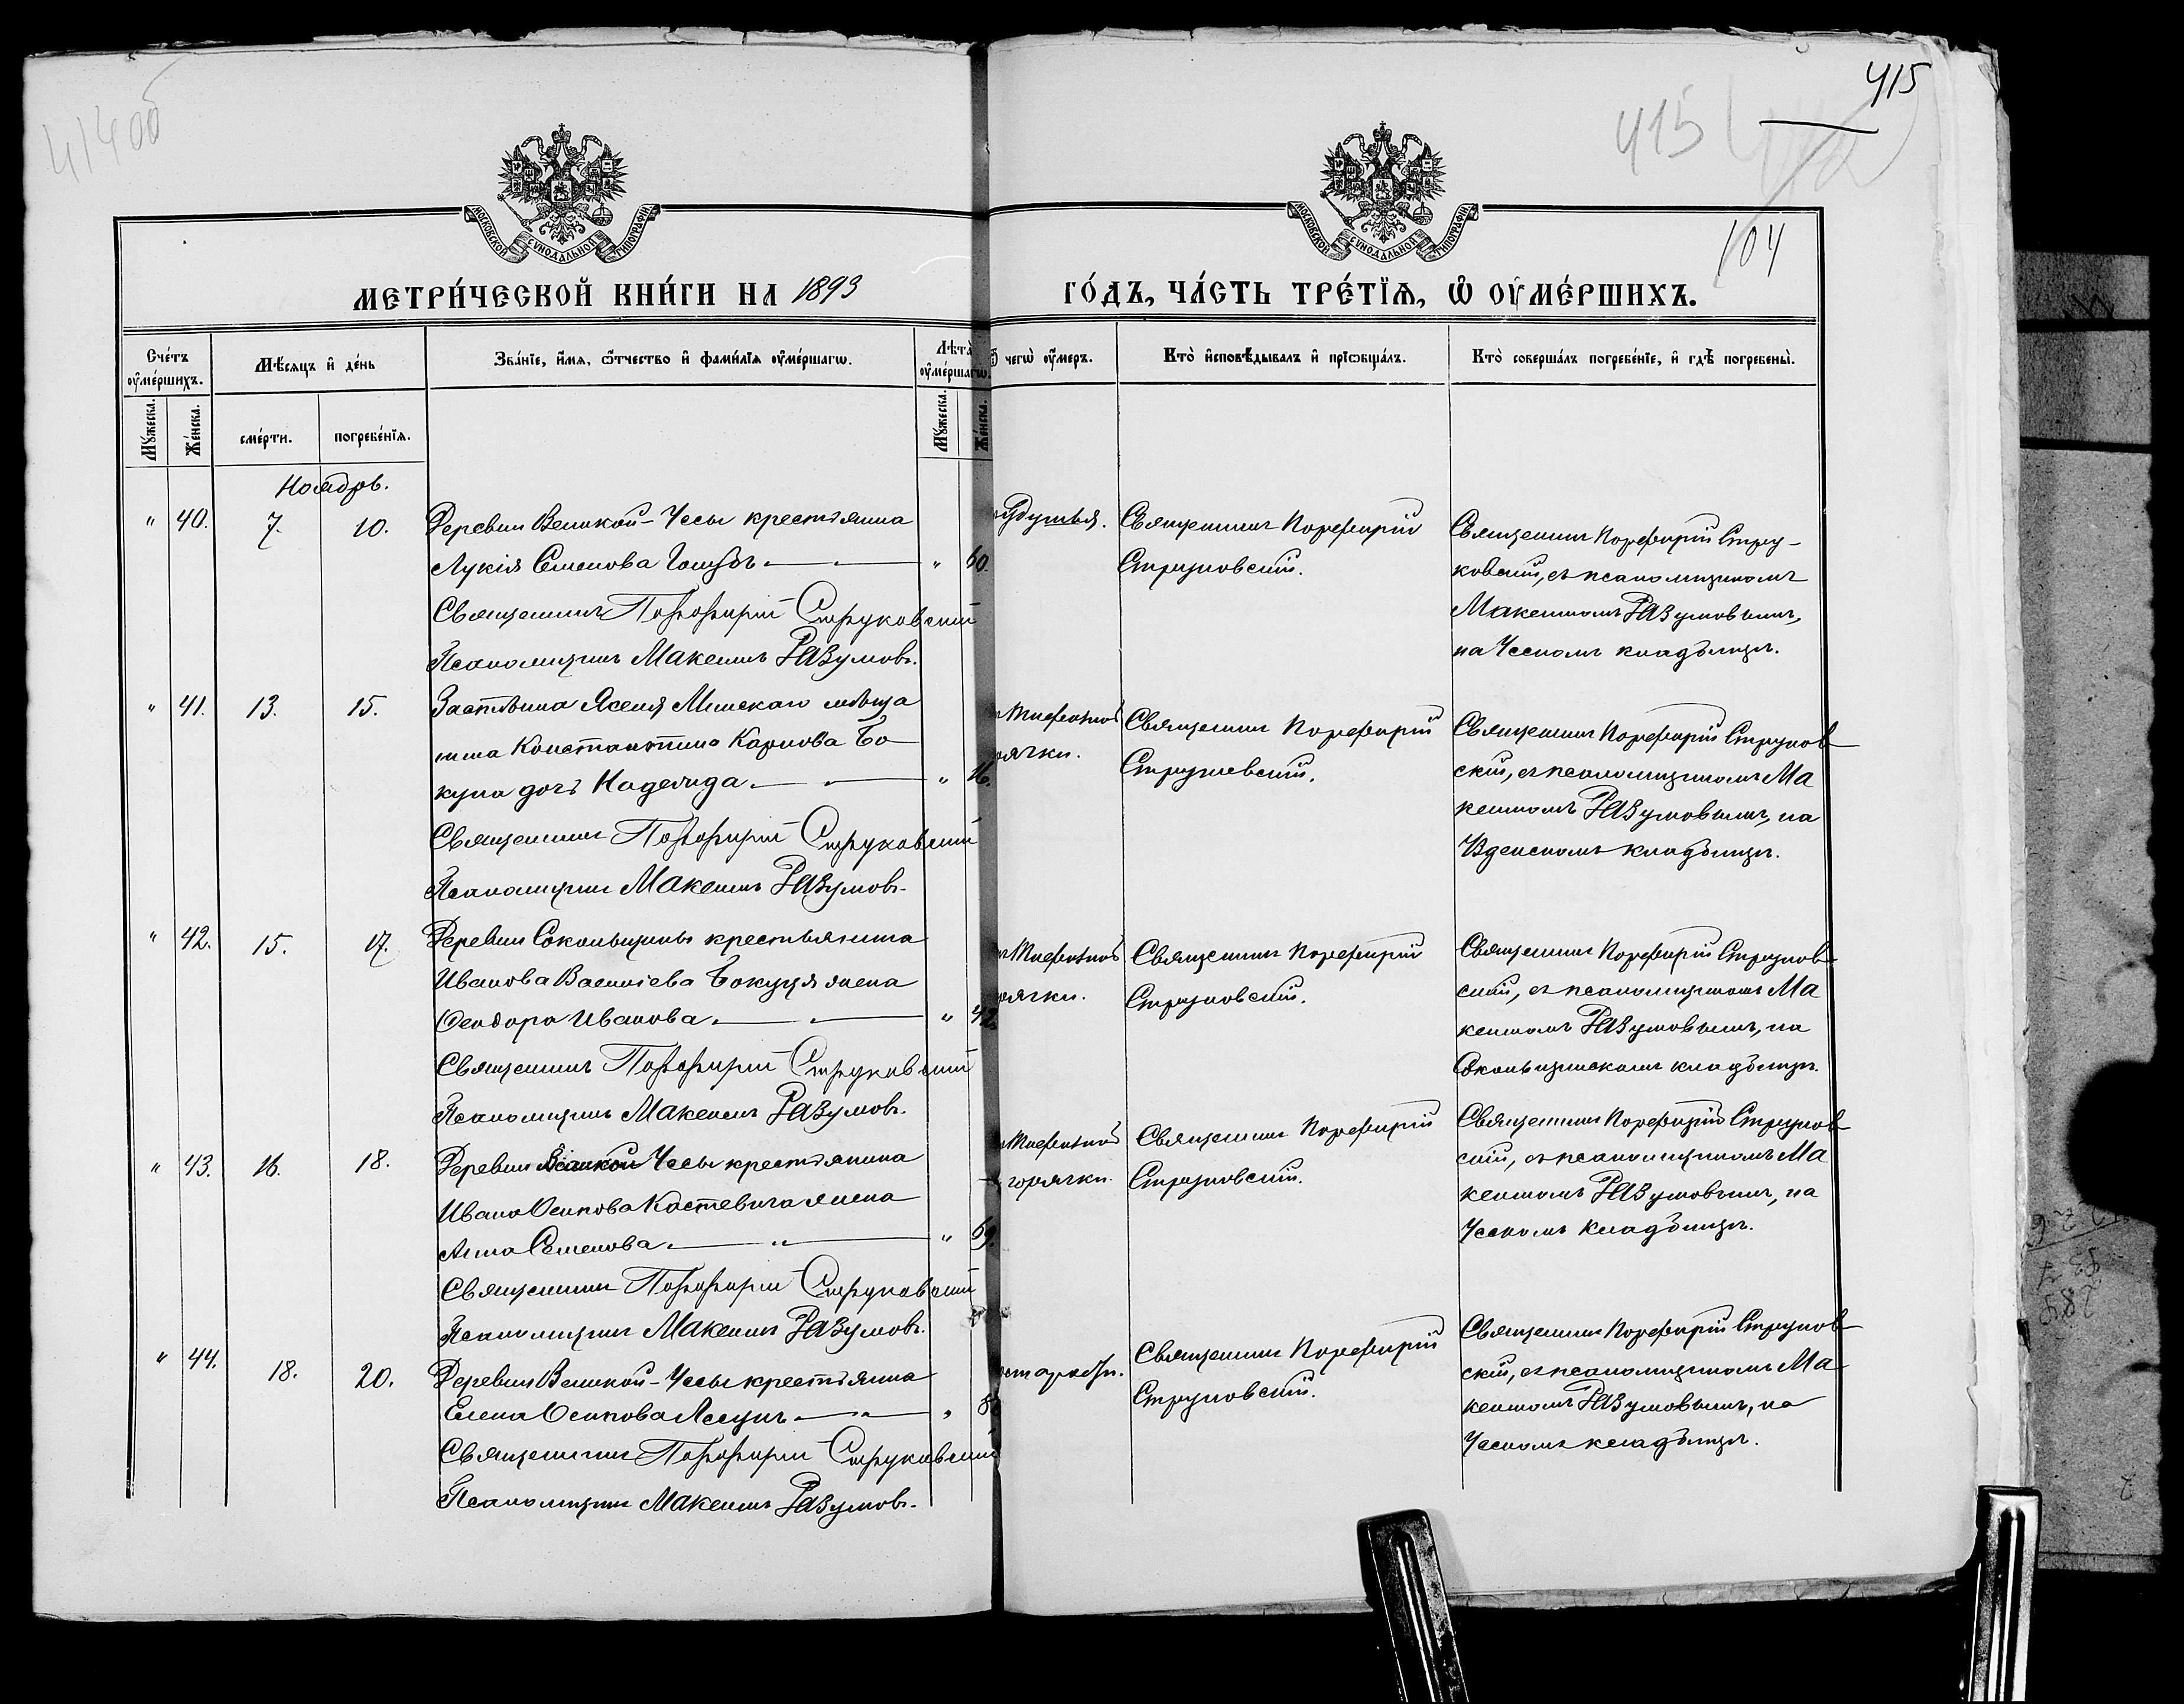 414 об
415
415
104
МОСКОВСКОЙ СѴНОДАЛЬНОЙ ТИПОГРАФІИ
МОСКОВСКОЙ СѴНОДАЛЬНОЙ ТИПОГРАФІИ
МЕТРИ́ЧЕСКОЙ КНИ́ГИ НА 1893
ГО́ДЪ, ЧА́СТЬ ТРЕ́ТЇѦ, Ѡ҆ ОУ҆МЕ́РШИХЪ.
Сче́тъ оу҆ме́ршихъ.
Мѣ́сяцъ и҆ де́нь
Зва́нїе, и҆́мя, ѻ҆́тчество и҆ фами́лїя оу҆ме́ршагѡ.
Лѣ́та оу҆ме́ршагѡ.
Ѿ чегѡ̀ оу҆́меръ.
Кто̀ и҆сповѣ́дывалъ и҆ прїѡбща́лъ.
Кто̀ соверша́лъ погребе́нїе, и҆ гдѣ̀ погребены̀.
Мꙋ́жеска.
Же́нска.
сме́рти.
погребе́нїя.
Мꙋ́жеска.
Же́нска.
Ноябрь.
" 40. 7. 10.
Деревни Великой-Чесы крестьянка
Лукія Семенова Голубъ " 60.
Священникъ Порфирій Струковскій
Псаломщикъ Максимъ Разумовъ.
Священникъ Порфирій
Струковскій.
Священникъ Порфирій Стру-
ковскій, съ псаломщикомъ
Максимомъ Разумовымъ,
на Ческомъ кладбищѣ.
" 41. 13. 15.
Минскаго мѣща
нина Константина Карпова Бо
куна дочь Надежда " 16.
Священникъ Порфирій Струковскій
Псаломщикъ Максимъ Разумовъ.
тифозной
рячки.
Священникъ Порфирій
Струковскій.
Священникъ Порфирій Струков
скій, съ псаломщикомъ Ма
ксимомъ Разумовымъ, на
кладбищѣ.
" 42. 15. 17.
Деревни Сокольщины крестьянина
Иванова Василіева жена
Ѳеодора Иванова " 42.
Священникъ Порфирій Струковскій
Псаломщикъ Максимъ Разумовъ.
тифозной
рячки.
Священникъ Порфирій
Струковскій.
Священникъ Порфирій Струков
скій, съ псаломщикомъ Ма
ксимомъ Разумовымъ, на
Сокольщинскомъ кладбищѣ.
" 43. 16. 18.
Деревни Великой Чесы крестьянина
Ивана Осипова Костевича жена
Анна Семенова " 69.
Священникъ Порфирій Струковскій
Псаломщикъ Максимъ Разумовъ.
тифозной
горячки.
Священникъ Порфирій
Струковскій.
Священникъ Порфирій Струков
скій, съ псаломщикомъ Ма
ксимомъ Разумовымъ, на
Ческомъ кладбищѣ.
" 44. 18. 20.
Деревни Великой-Чесы крестьянка
Елена Осипова "
Священникъ Порфирій Струковскій
Псаломщикъ Максимъ Разумовъ.
старости.
Священникъ Порфирій
Струковскій.
Священникъ Порфирій Струков
скій, съ псаломщикомъ Ма
ксимомъ Разумовымъ, на
Ческомъ кладбищѣ.